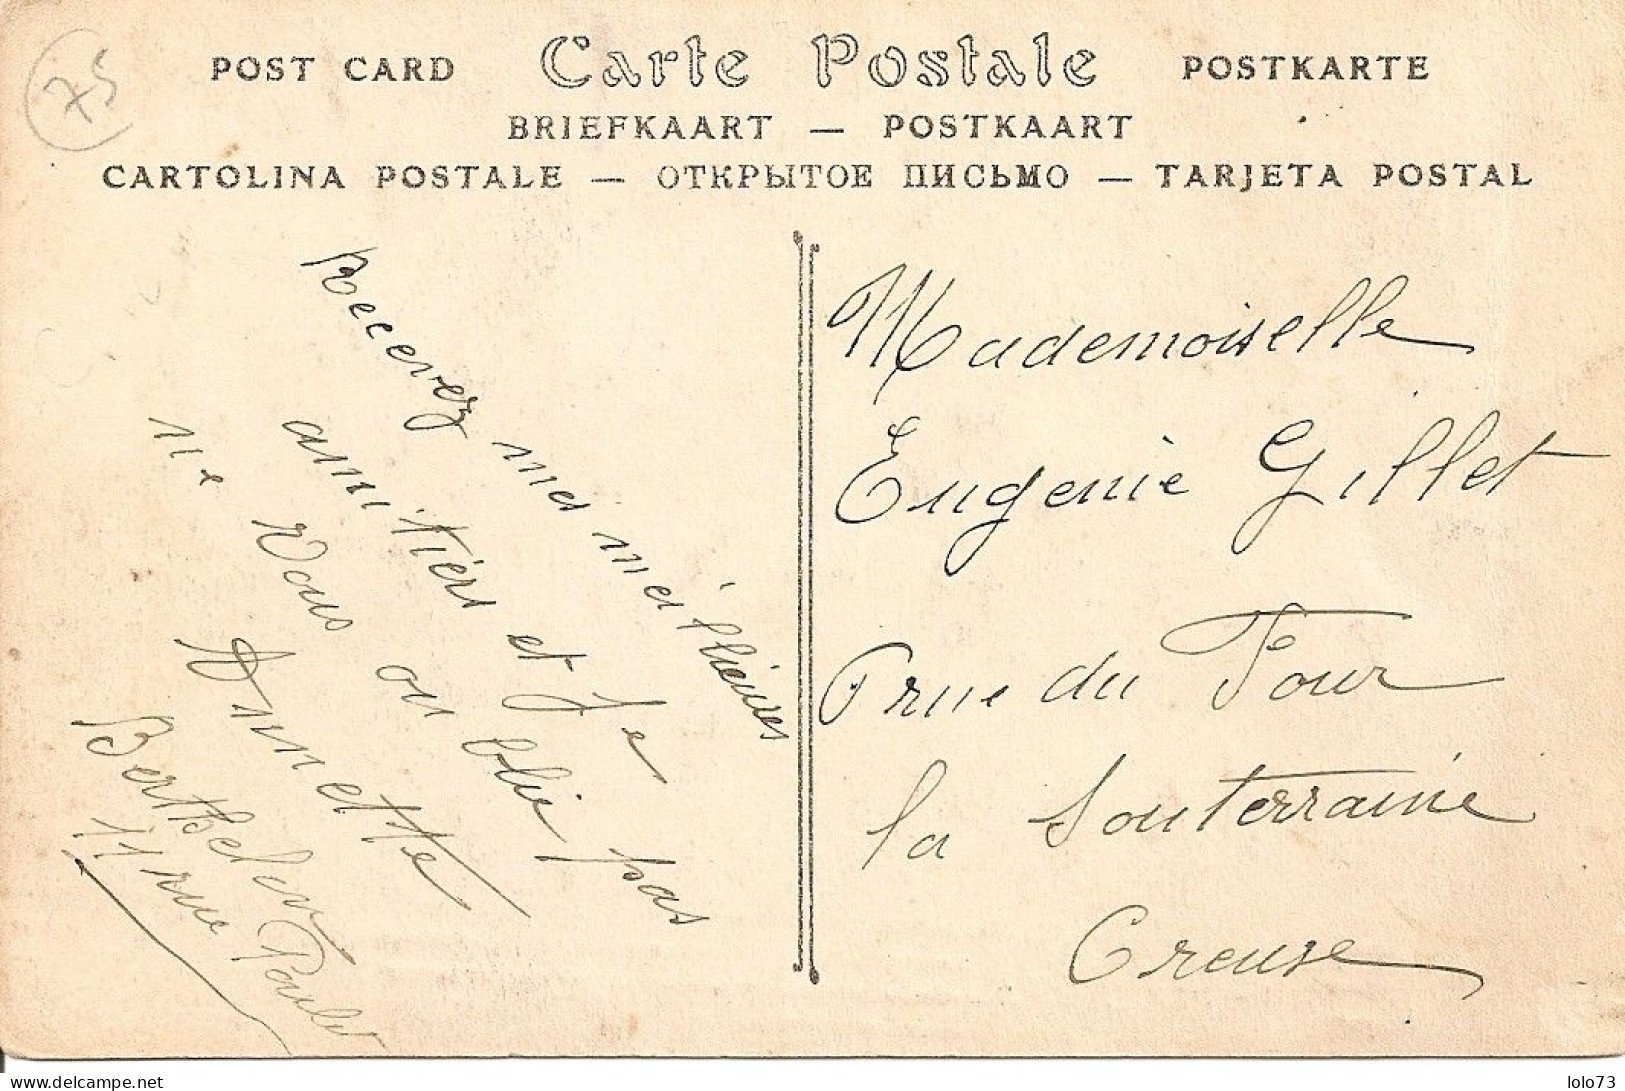 75
POST CARD Carte Postale POSTKARTE
BRIEFKAART — POSTKAART
CARTOLINA POSTALE — ОТКРЫТОЕ ПИСЬМО — TARJETA POSTAL
Recevez mes meilleures
amitiés et Je
ne vous oublie pas
Annette
11 rue
Mademoiselle
Eugenie Gillet
rue du Four
la Souterraine
Creuse
delcampe.net
lolo73